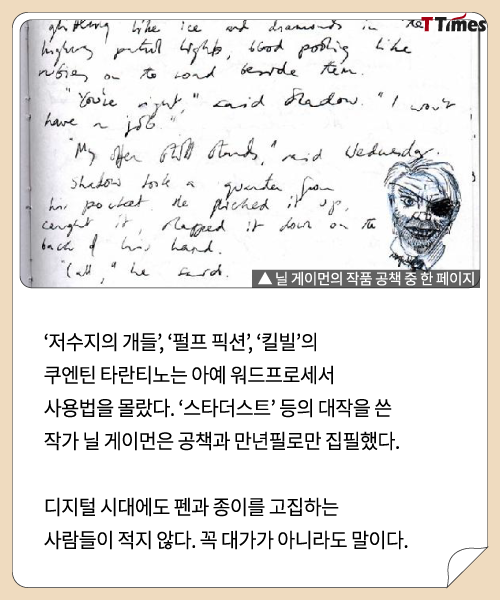 T Times
glittering like ice and diamonds in the
highway patrol lights, blood pooling like
rubies on the road beside them.
"You're right," said Shadow. "I won't
have a job."
"My offer still stands," said Wednesday.
Shadow took a quarter from
his pocket. He flicked it up,
caught it, slapped it down on the
back of his hand.
"Call," he said.
▲ 닐 게이먼의 작품 공책 중 한 페이지
‘저수지의 개들’, ‘펄프 픽션’, ‘킬빌’의
쿠엔틴 타란티노는 아예 워드프로세서
사용법을 몰랐다. ‘스타더스트’ 등의 대작을 쓴
작가 닐 게이먼은 공책과 만년필로만 집필했다.
디지털 시대에도 펜과 종이를 고집하는
사람들이 적지 않다. 꼭 대가가 아니라도 말이다.